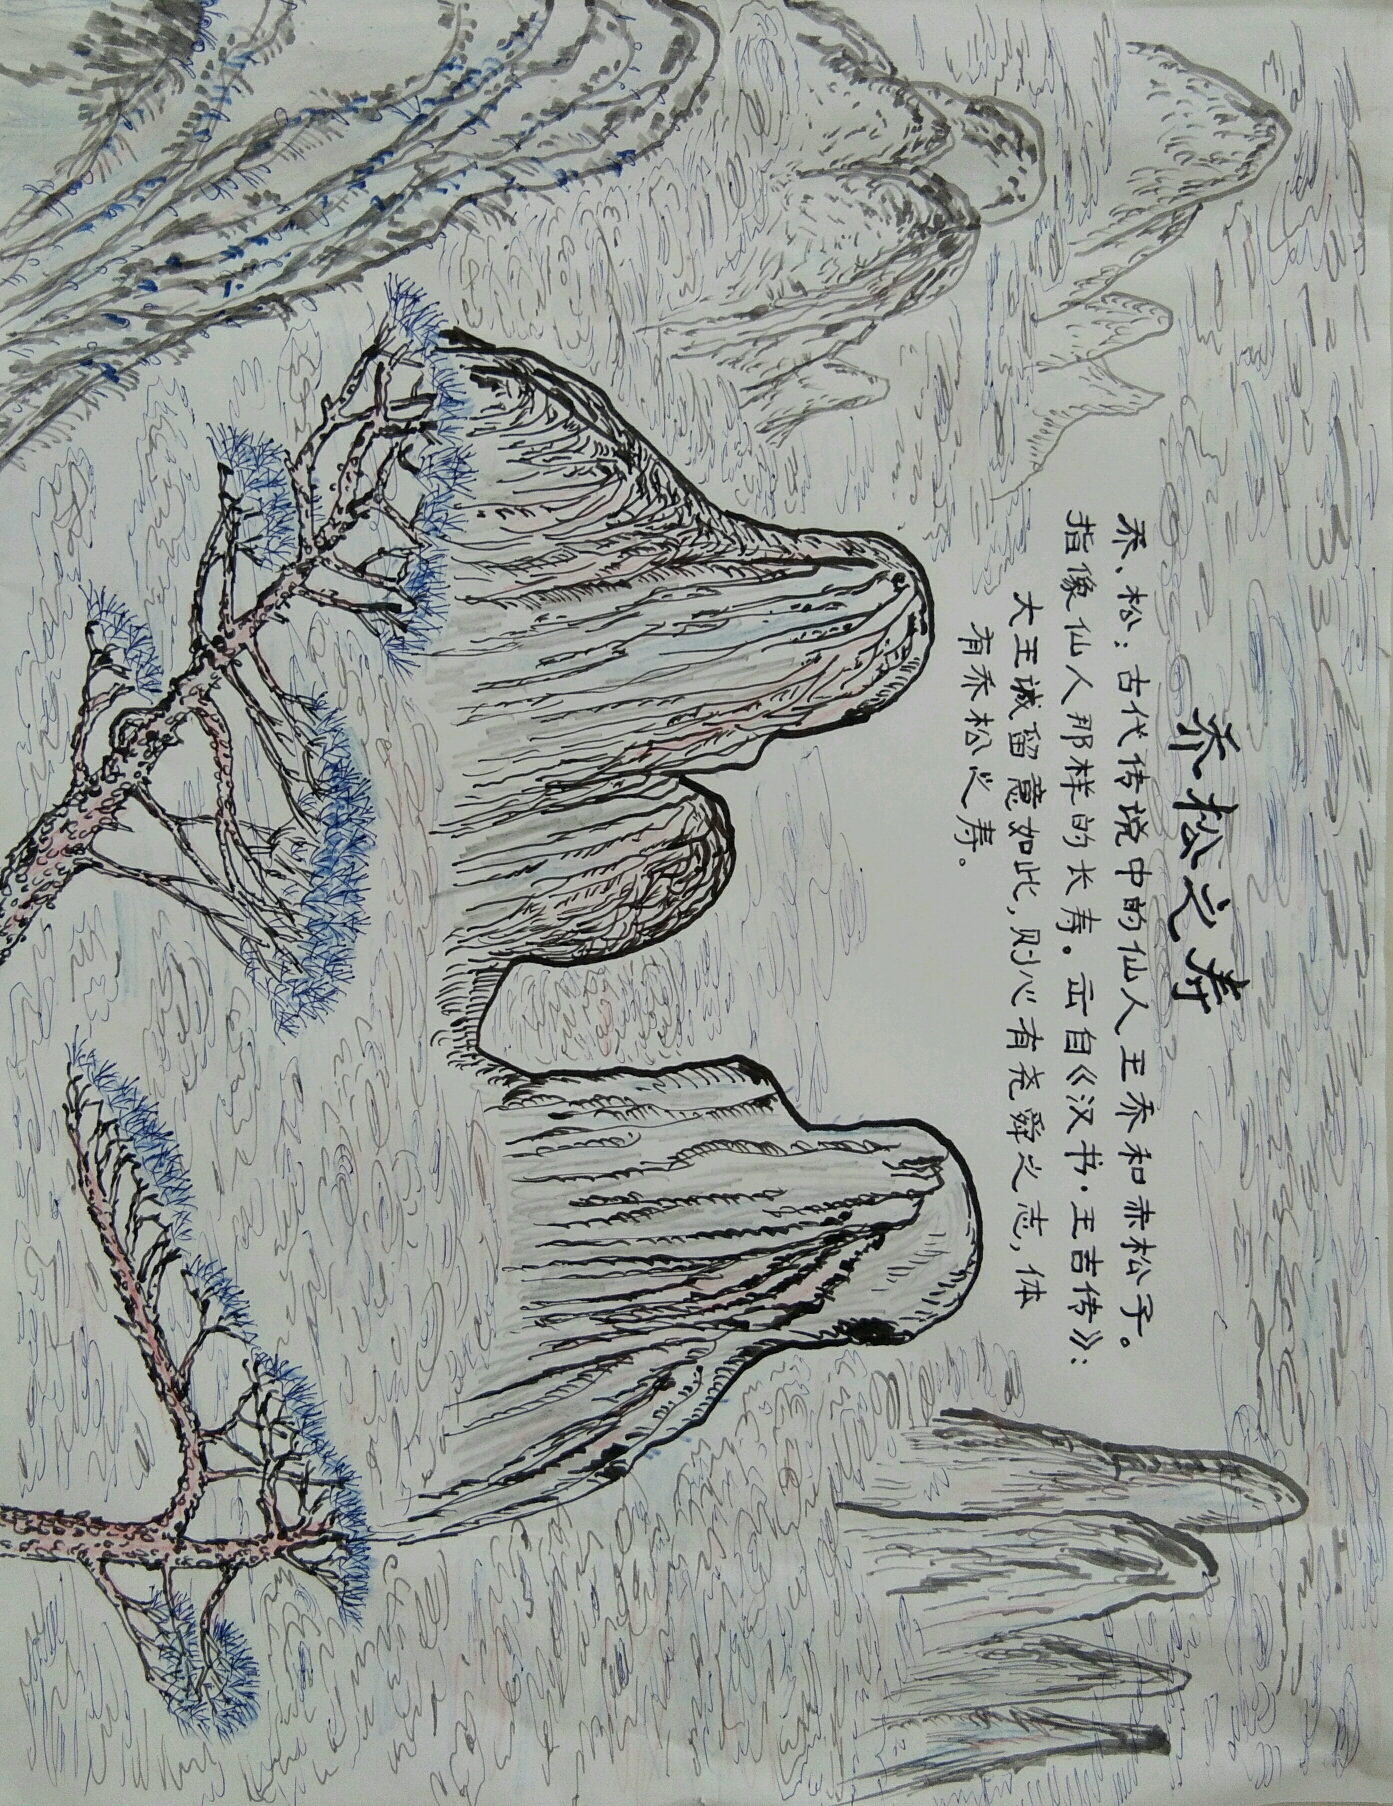 乔松之寿
乔、松：古代传说中的仙人王乔和赤松子。
指像仙人那样的长寿。语自《汉书·王吉传》：
大王诚留意如此，则心有尧舜之志，体
有乔松之寿。